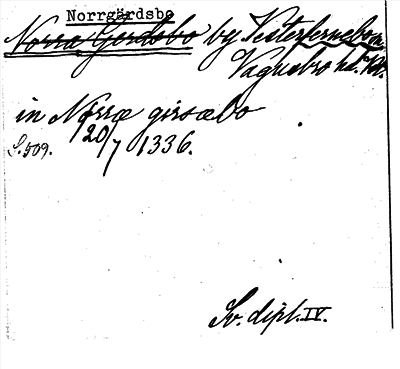 Norrgärdsbo
Norra Gerdsbo by Vesterfernebo sn,
Vagnsbro hd.
in Norræ girsæbo
S. 509. 20/7 1336.
Sv. dipl. IV.